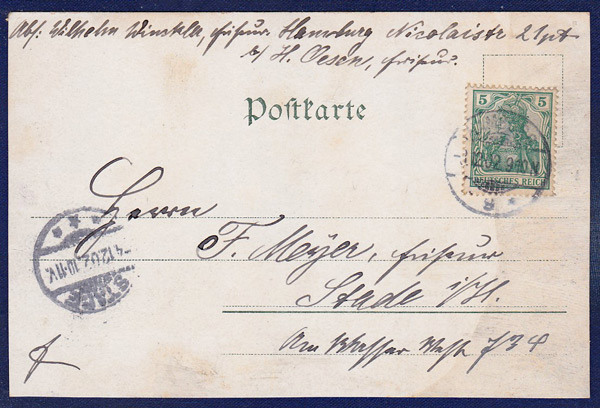 Abs: Wilhelm Winckler, friseur Hamburg Nicolaistr 21 pt
b/ H. Oesen, friseur.
Postkarte
5 5
DEUTSCHES REICH
Herrn
F. Meyer, friseur
Stade i/H.
Am Wasser West 734
STADE
4.12.02.10-11V.